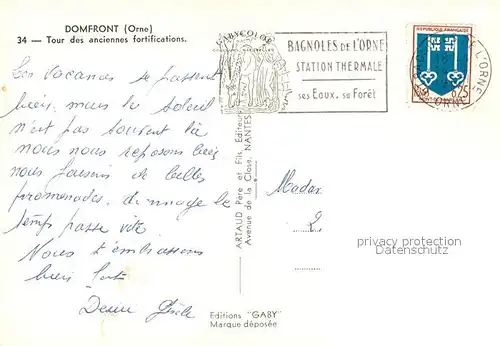 DOMFRONT (Orne)
34 — Tour des anciennes fortifications.
Les vacances se passent
bien, mais le soleil
n'est pas souvent là
nous nous reposons bien,
nous faisons de belles
promenades, du nuage le
temps passe vite.
Nous t'embrassons
bien fort
Gisèle
GABYCOLOR
BAGNOLES DE L'ORNE
STATION THERMALE
ses Eaux. sa Forêt
REPUBLIQUE FRANÇAISE
0,25
MONT-DE-MARSAN
DE L'ORNE
ARTAUD Père et Fils, Editeurs
Avenue de la Close, NANTES
Madax
privacy protection
privacy protection
Editions "GABY"
Marque déposée